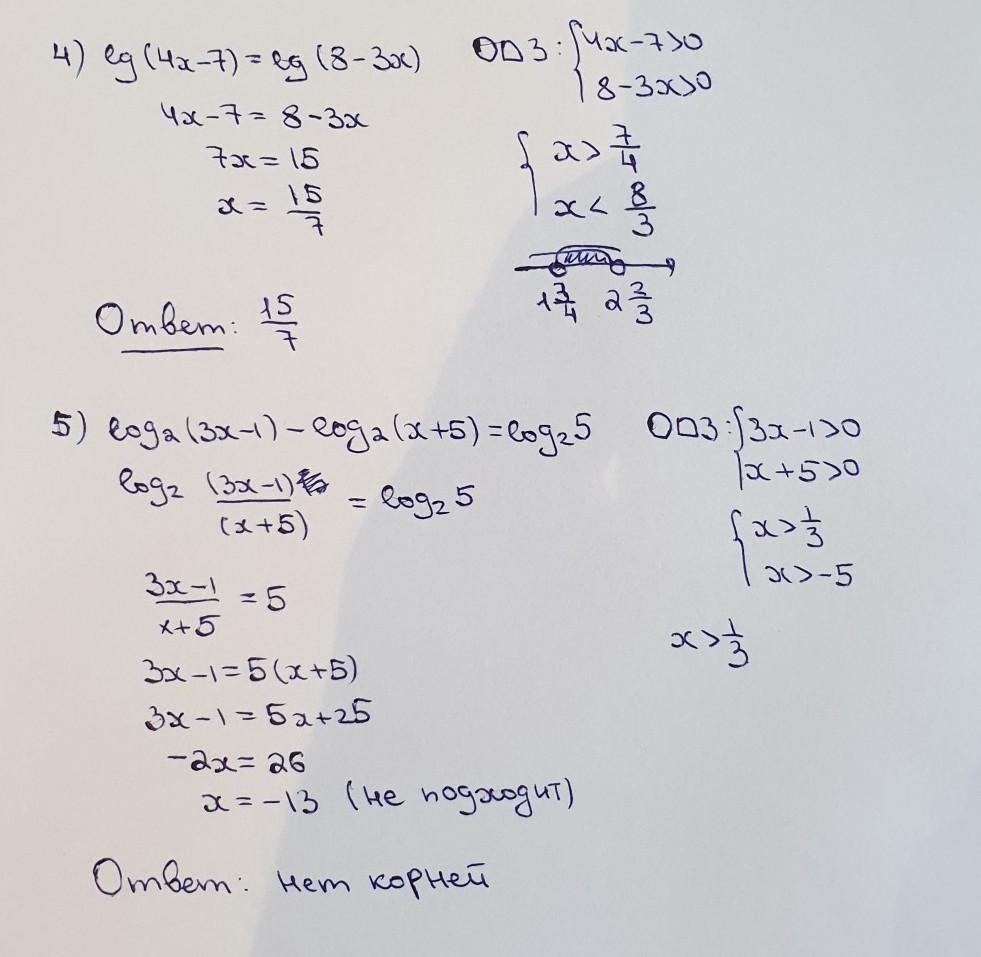 4) lg(4x-7)=lg(8-3x)
ОДЗ: {4x-7>0
8-3x>0
4x-7=8-3x
7x=15
x=15/7
{x>7/4
x<8/3
1 3/4 2 2/3
Ответ: 15/7
5) log₂(3x-1)-log₂(x+5)=log₂5
ОДЗ: {3x-1>0
x+5>0
log₂ (3x-1)/(x+5) = log₂5
{x>1/3
x>-5
(3x-1)/(x+5) = 5
x>1/3
3x-1=5(x+5)
3x-1=5x+25
-2x=26
x=-13 (не подходит)
Ответ: нет корней